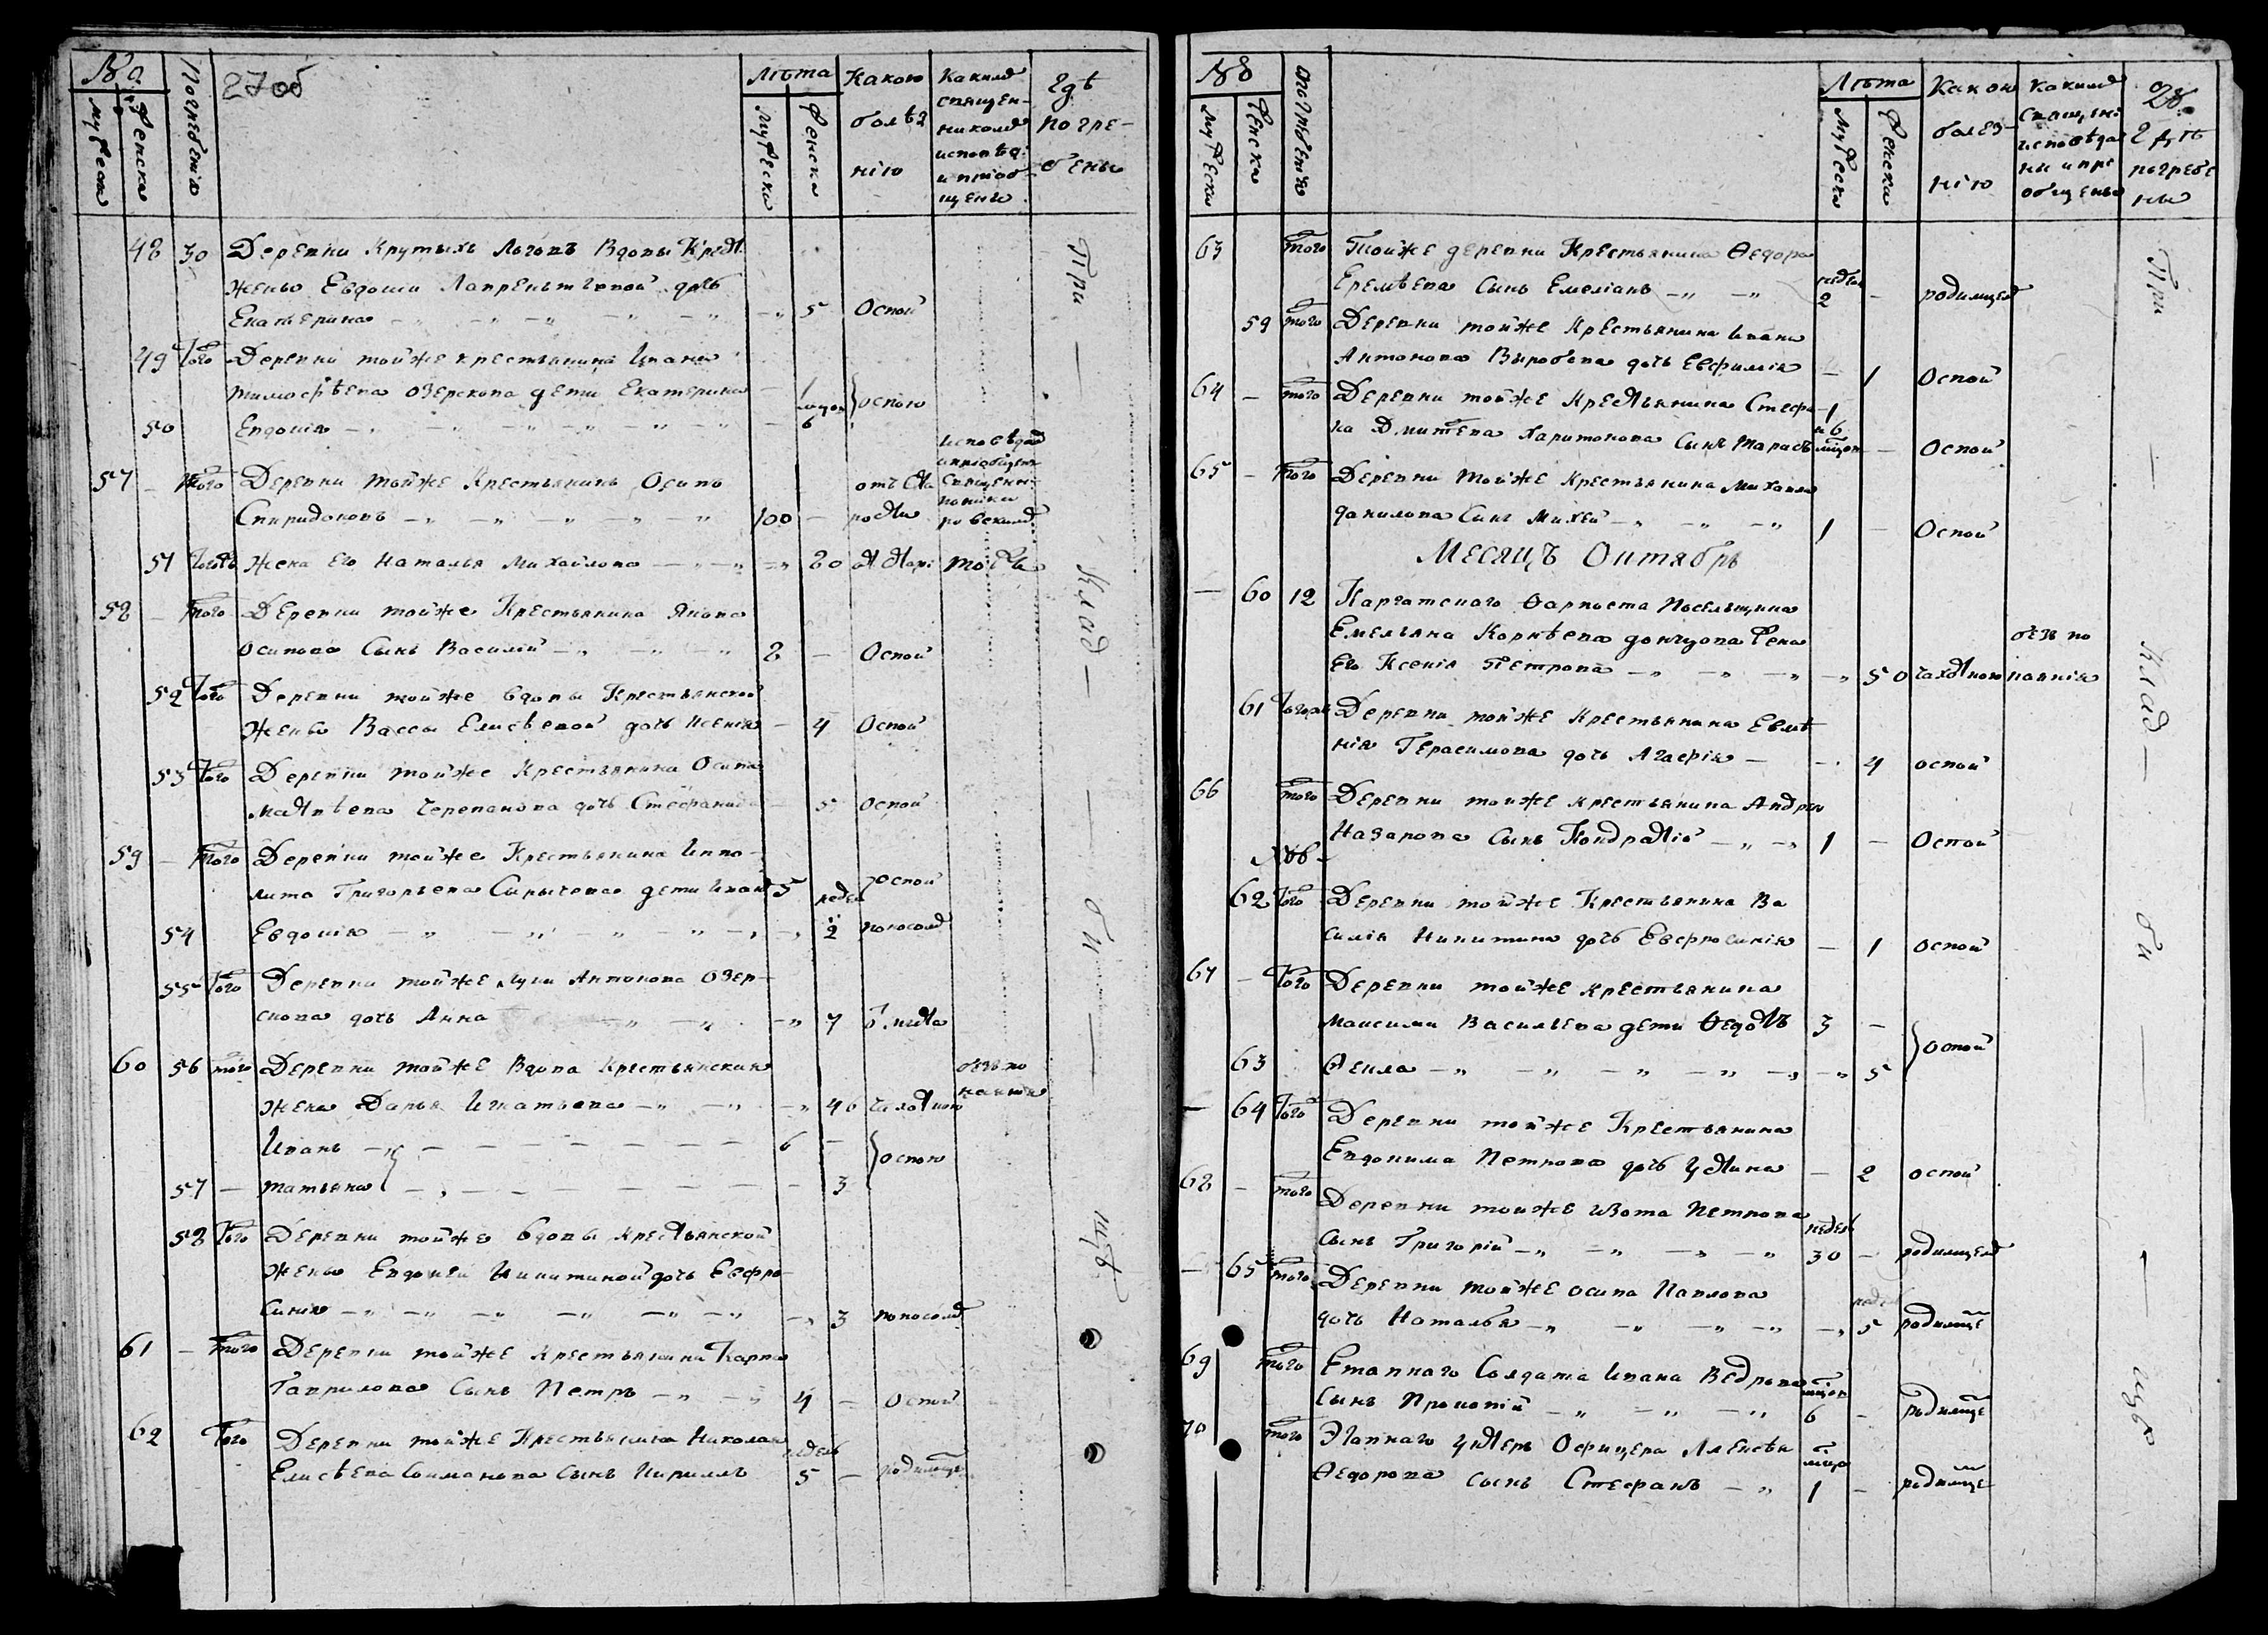 27 об
№
Мужеска
Женска
Погребенiя
Лѣта
Мужеска
Женска
Какою
болѣз
нiю
Какимъ
священ-
никомъ
исповѣд:
и прiоб-
щены
Гдѣ
погре-
бены
48 30 Деревни Крутыхъ Логовъ Вдовы Крест.
жены Евдокии Лаврентiевой дочь
Екатерина 5 Оспой
49 Того Деревни тойже крестьянина Ивана
Тимофѣева Озерскова дети Екатерина 1 оспою
50 Евдокiя 6
57 Того Деревни тойже Крестьянинъ Осипъ
Спиридоновъ 100 отъ ста рости
исповѣдан
и прiобщен
Священ
51 Тогожъ жена Его Наталья Михайлова 80
58 Того Деревни тойже Крестьянина Якова
Осипова Сынъ Василiй 2 Оспой
52 Того Деревни тойже вдовы Крестьянской
жены Вассы Елисѣевой дочь Ксенiя 4 Оспой
53 Того Деревни тойже Крестьянина Осипа
Матвѣева Черепанова дочь Стефанида 5 оспой
59 Того Деревни тойже Крестьянина Иппо-
лита Григорьева Сарычева дети Иванъ 5 оспой
недел
54 Евдокiя 2 поносомъ
55 Того Деревни тойже Луки Антонова Озер-
скова дочь Анна 7
60 56 того Деревни тойже Вдова Крестьянская
жена Дарья Игнатьева 40 чахотною
безъ по
каянiя
Иванъ 6 оспою
57 Татьяна 3
58 Того Деревни тойже вдовы крестьянской
жены Евдокiи Никитиной дочь Евфро-
синiя 3 поносомъ
61 Того Деревни тойже Крестьянина Карпа
Гаврилова Сынъ Петръ 4 Оспой
62 Того Деревни тойже Крестьянина Николая
недель
Елисѣева Симанова Сынъ Кириллъ 5 родимце
При
клад
би
щѣ
28.
№
Мужеска
Женска
Погребенiя
Лѣта
Мужеска
Женска
Какою
болез-
нiю
Какимъ
священ:
исповѣда
ны и прi
общены
Гдѣ
погребе
ны
63 Того Тойже деревни Крестьянина Ѳедора
недель
Еремѣева Сынъ Емелiанъ 2 родимцемъ
59 того Деревни тойже Крестьянина Ивана
Антонова Выробева дочь Евфимiя 1 Оспой
64 того Деревни тойже Крестьянина Стефа 1
на Дмитрева Харитонова Сынъ Тарасъ и 6 мцов Оспой
65 Того Деревни тойже крестьянина Михаила
Данилова Сынъ Михей 1 Оспой
Месяцъ Октябрь
60 12 Каргатскаго Фарпоста Посельщика
Емельяна Корнѣева Донцова жена
Его Ксенiя Петрова 50 чахотною
безъ по
каянiя
61 Тогожъ Деревни тойже Крестьянина Евме
нiя Герасимова дочь Агафiя 4 оспой
66 того Деревни тойже крестьянина Андрея
Назарова Сынъ Кондратiй 1 Оспой
62 Того Деревни тойже Крестьянина Ва
силiя Никитина дочь Евфросинiя 1 оспой
67 Того Деревни тойже крестьянина
Максима Васильева дети Ѳедотъ 3 оспой
63 Ѳекла 5
64 Того Деревни тойже Крестьянина
Евдокима Петрова дочь Устина 2 оспой
68 того Деревни тойже Изота Петрова
недель
Сынъ Григорiй 30 родимцемъ
65 того Деревни тойже Осипа Павлова
недел
дочь Наталья 5 родимце
69 того Етапнаго Солдата Ивана Ведрова
мцов
Сынъ Прокопiй 6 родимце
70 того Этапнаго Унтеръ Офицера Алексѣя
мцо
Ѳедорова сынъ Стефанъ 1 родимце
При
клад
би
щѣ